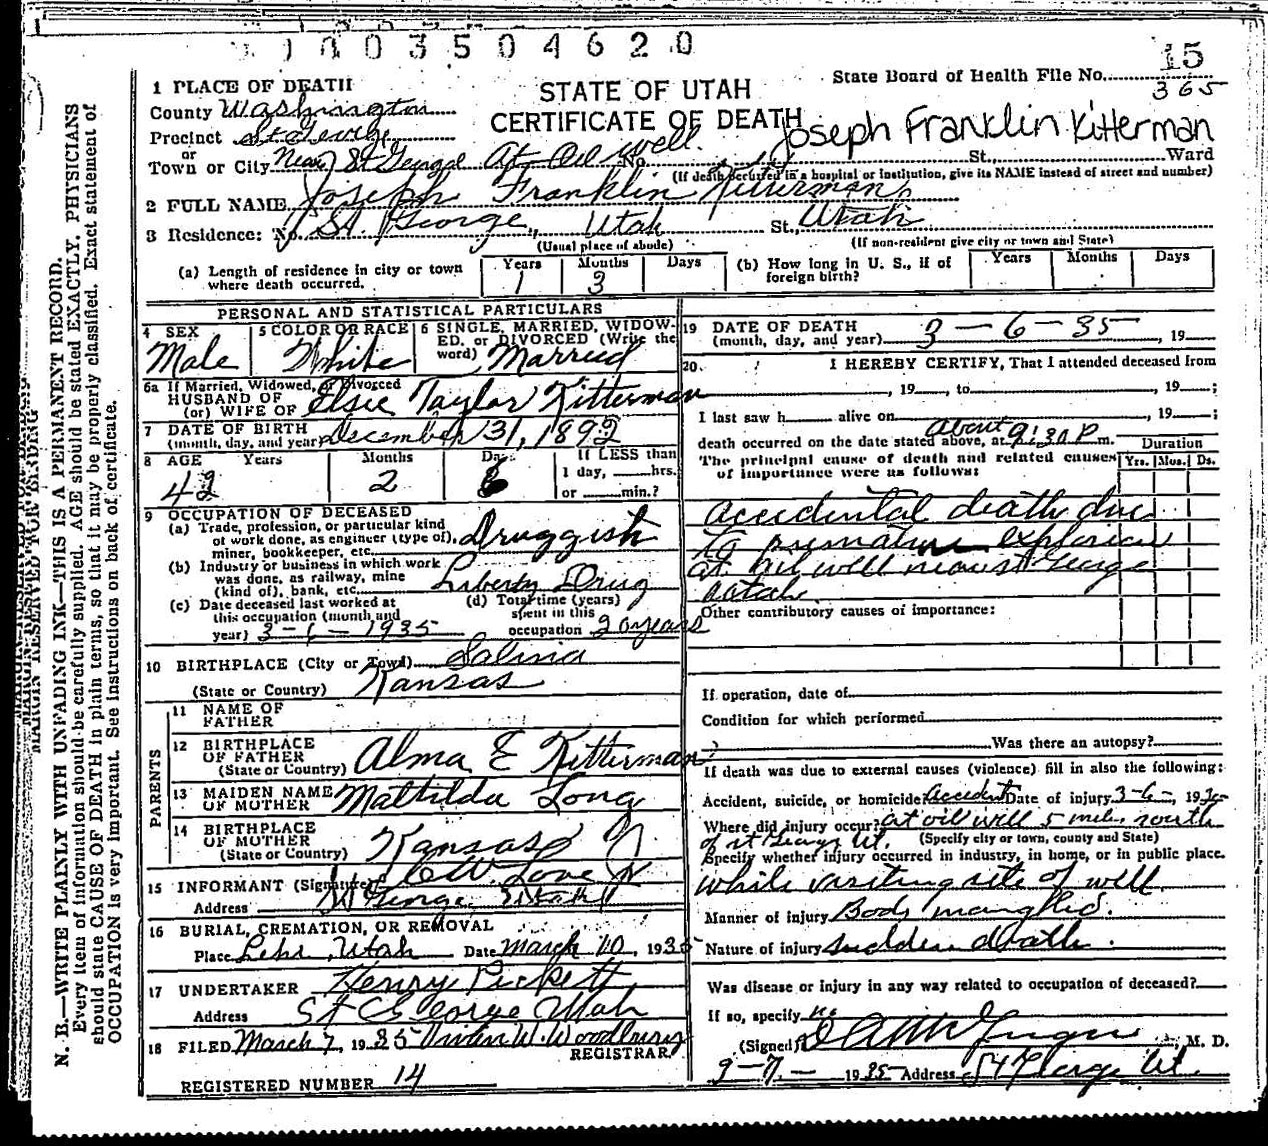 1003504620
15
State Board of Health File No.
365
1 PLACE OF DEATH
STATE OF UTAH
CERTIFICATE OF DEATH
Joseph Franklin Kitterman
County Washington
Precinct St George
or
Town or City Near St George At Oil well. No. St., Ward
(If death occurred in a hospital or institution, give its NAME instead of street and number)
2 FULL NAME Joseph Franklin Kitterman
3 Residence: No. St George, Utah St., Utah
(Usual place of abode) (If non-resident give city or town and State)
(a) Length of residence in city or town where death occurred. Years 1 Months 3 Days
(b) How long in U. S., if of foreign birth? Years Months Days
PERSONAL AND STATISTICAL PARTICULARS
4 SEX Male
5 COLOR OR RACE White
6 SINGLE, MARRIED, WIDOWED, or DIVORCED (Write the word) Married
6a If Married, Widowed, or Divorced
HUSBAND OF
(or) WIFE OF Elsie Taylor Kitterman
7 DATE OF BIRTH
(month, day, and year) December 31, 1892
8 AGE Years 42 Months 2 Days 6 If LESS than 1 day, hrs. or min.?
9 OCCUPATION OF DECEASED
(a) Trade, profession, or particular kind of work done, as engineer (type of), miner, bookkeeper, etc. Druggist
(b) Industry or business in which work was done, as railway, mine (kind of), bank, etc. Liberty Drug
(c) Date deceased last worked at this occupation (month and year) 3-6-1935
(d) Total time (years) spent in this occupation 20 years
10 BIRTHPLACE (City or Town) Salina
(State or Country) Kansas
PARENTS
11 NAME OF FATHER
12 BIRTHPLACE OF FATHER
(State or Country) Alma E Kitterman
13 MAIDEN NAME OF MOTHER Mathilda Long
14 BIRTHPLACE OF MOTHER
(State or Country) Kansas
15 INFORMANT (Signature)
Address St George Utah
16 BURIAL, CREMATION, OR REMOVAL
Place Lehi, Utah Date March 10, 1935
17 UNDERTAKER Henry Pickett
Address St George Utah
18 FILED March 7, 1935 Vivian W. Woodbury
REGISTRAR
REGISTERED NUMBER 14
19 DATE OF DEATH
(month, day, and year) 3-6-35, 19
20. I HEREBY CERTIFY, That I attended deceased from
, 19, to, 19;
I last saw h alive on, 19;
death occurred on the date stated above, at About 9:30 P m.
Duration
Yrs. Mos. Ds.
The principal cause of death and related causes of importance were as follows:
accidental death due
to premature explosion
at oil well near St George
Utah.
Other contributory causes of importance:
If operation, date of
Condition for which performed
Was there an autopsy?
If death was due to external causes (violence) fill in also the following:
Accident, suicide, or homicide Accident Date of injury 3-6-, 1935
Where did injury occur? at oil well 5 miles south
of St George Ut. (Specify city or town, county and State)
Specify whether injury occurred in industry, in home, or in public place.
while visiting site of well
Manner of injury Body mangled.
Nature of injury sudden death.
Was disease or injury in any way related to occupation of deceased?
If so, specify no
(Signed), M. D.
3-7- 1935 Address St George Ut.
MARGIN RESERVED FOR BINDING
N. B.—WRITE PLAINLY WITH UNFADING INK—THIS IS A PERMANENT RECORD.
Every item of information should be carefully supplied. AGE should be stated EXACTLY. PHYSICIANS
should state CAUSE OF DEATH in plain terms, so that it may be properly classified. Exact statement of
OCCUPATION is very important. See instructions on back of certificate.